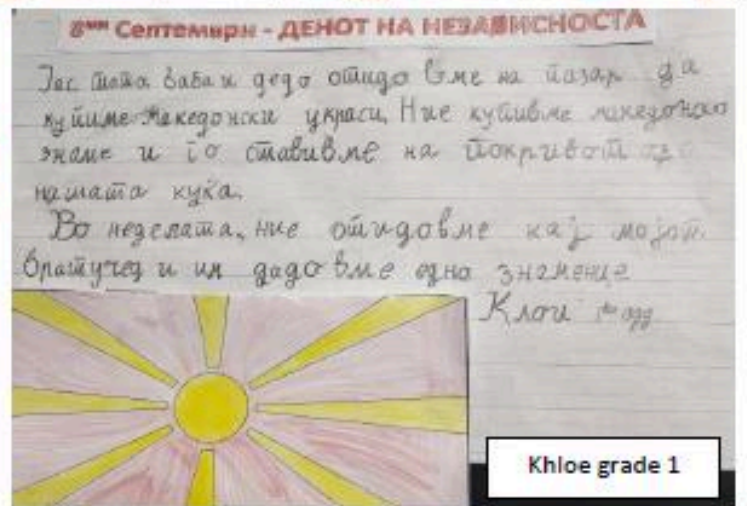 8ми Септември - ДЕНОТ НА НЕЗАВИСНОСТА
Јас тата баба и дедо отидовме на пазар да
купиме Македонски украси. Ние купивме македонско
знаме и го ставивме на покривот од
нашата куќа.
Во неделата, ние отидовме кај мојот
братучед и им дадовме едно знаменце
Клои 1во одд
Khloe grade 1